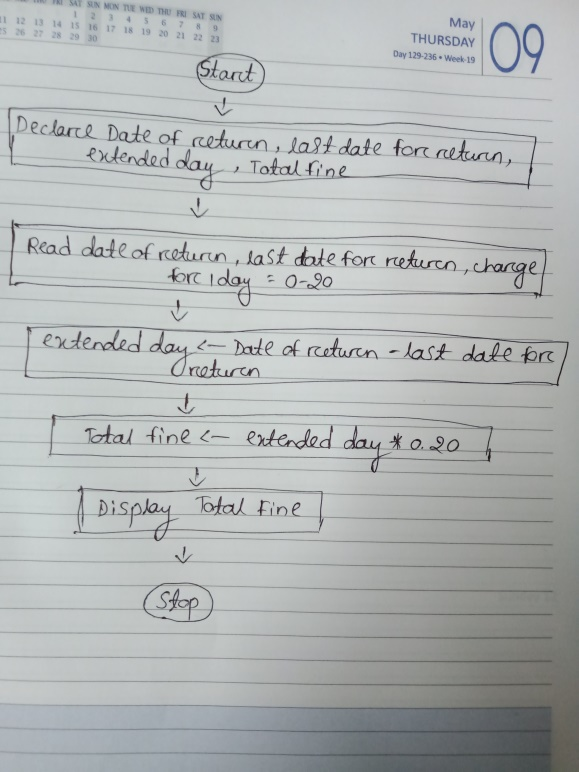 FRI SAT SUN MON TUE WED THU FRI SAT SUN
1 2 3 4 5 6 7 8 9
11 12 13 14 15 16 17 18 19 20 21 22 23
25 26 27 28 29 30
May
THURSDAY
Day 129-236 • Week-19
09
Start
Declare Date of return, last date for return,
extended day, Total fine
Read date of return, last date for return, charge
for 1 day = 0-20
extended day <- Date of return - last date for
return
Total fine <- extended day * 0.20
Display Total Fine
Stop